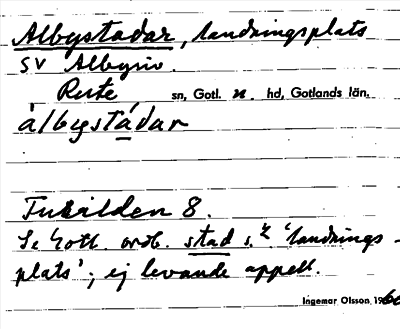 Albystadar, landningsplats
SV Albyviv.
Rute sn, Gotl. n. hd, Gotlands län.
álbystádar
8.
Se Gotl. ordb. stad s.² 'landnings-
plats'; ej levande appell.
Ingemar Olsson, 1960